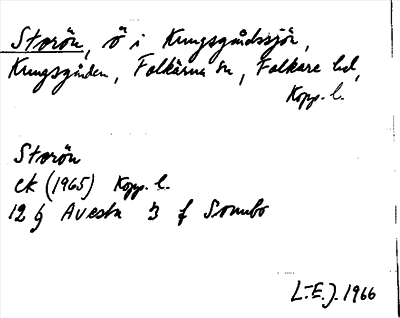 Storön, ö i Kungsgårdssjön,
Kungsgården, Folkärna sn, Folkare hd,
Kopp. l.
Storön
ek (1965) Kopp. l.
12 g Avesta 3 f Sonnbo
L-E.J. 1966